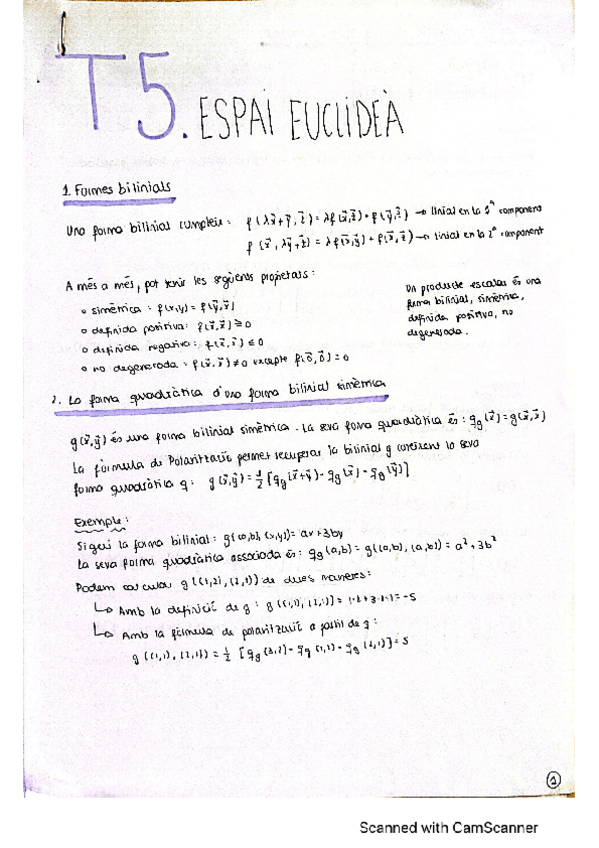 T5. ESPAI EUCLIDEÀ
1. Formes bilinials
Una forma bilinial compleix: f(λx⃗+y⃗, z⃗) = λf(x⃗,z⃗) + f(y⃗,z⃗) → linial en la 1ª component
f(x⃗, λy⃗+z⃗) = λf(x⃗,y⃗) + f(x⃗,z⃗) → linial en la 2ª component
A més a més, pot tenir les següents propietats:
o simètrica: f(x,y) = f(y⃗,x⃗)
o definida positiva: f(x⃗,x⃗) ≥ 0
o definida negativa: f(x⃗,x⃗) ≤ 0
o no degenerada: f(x⃗,x⃗) ≠ 0 excepte f(0⃗,0⃗) = 0
Un producte escalar és una
forma bilinial, simètrica,
definida positiva, no
degenerada.
2. La forma quadràtica d'una forma bilinial simètrica
g(x⃗,y⃗) és una forma bilinial simètrica. La seva forma quadràtica és: qg(x⃗) = g(x⃗,x⃗)
La fórmula de Polarització permet recuperar la bilinial g coneixent la seva
forma quadràtica q: g(x⃗,y⃗) = 1/2 [qg(x⃗+y⃗) - qg(x⃗) - qg(y⃗)]
Exemple:
Sigui la forma bilinial: g((a,b),(x,y)) = ax+3by
La seva forma quadràtica associada és: qg(a,b) = g((a,b),(a,b)) = a²+3b²
Podem calcular g((1,2),(2,1)) de dues maneres:
↳ Amb la definició de g: g((1,1),(2,1)) = 1·2+3·1·1 = 5
↳ Amb la fórmula de polarització a partir de g:
g((1,1),(2,1)) = 1/2 [qg(3,2) - qg(1,1) - qg(2,1)] = 5
1
Scanned with CamScanner